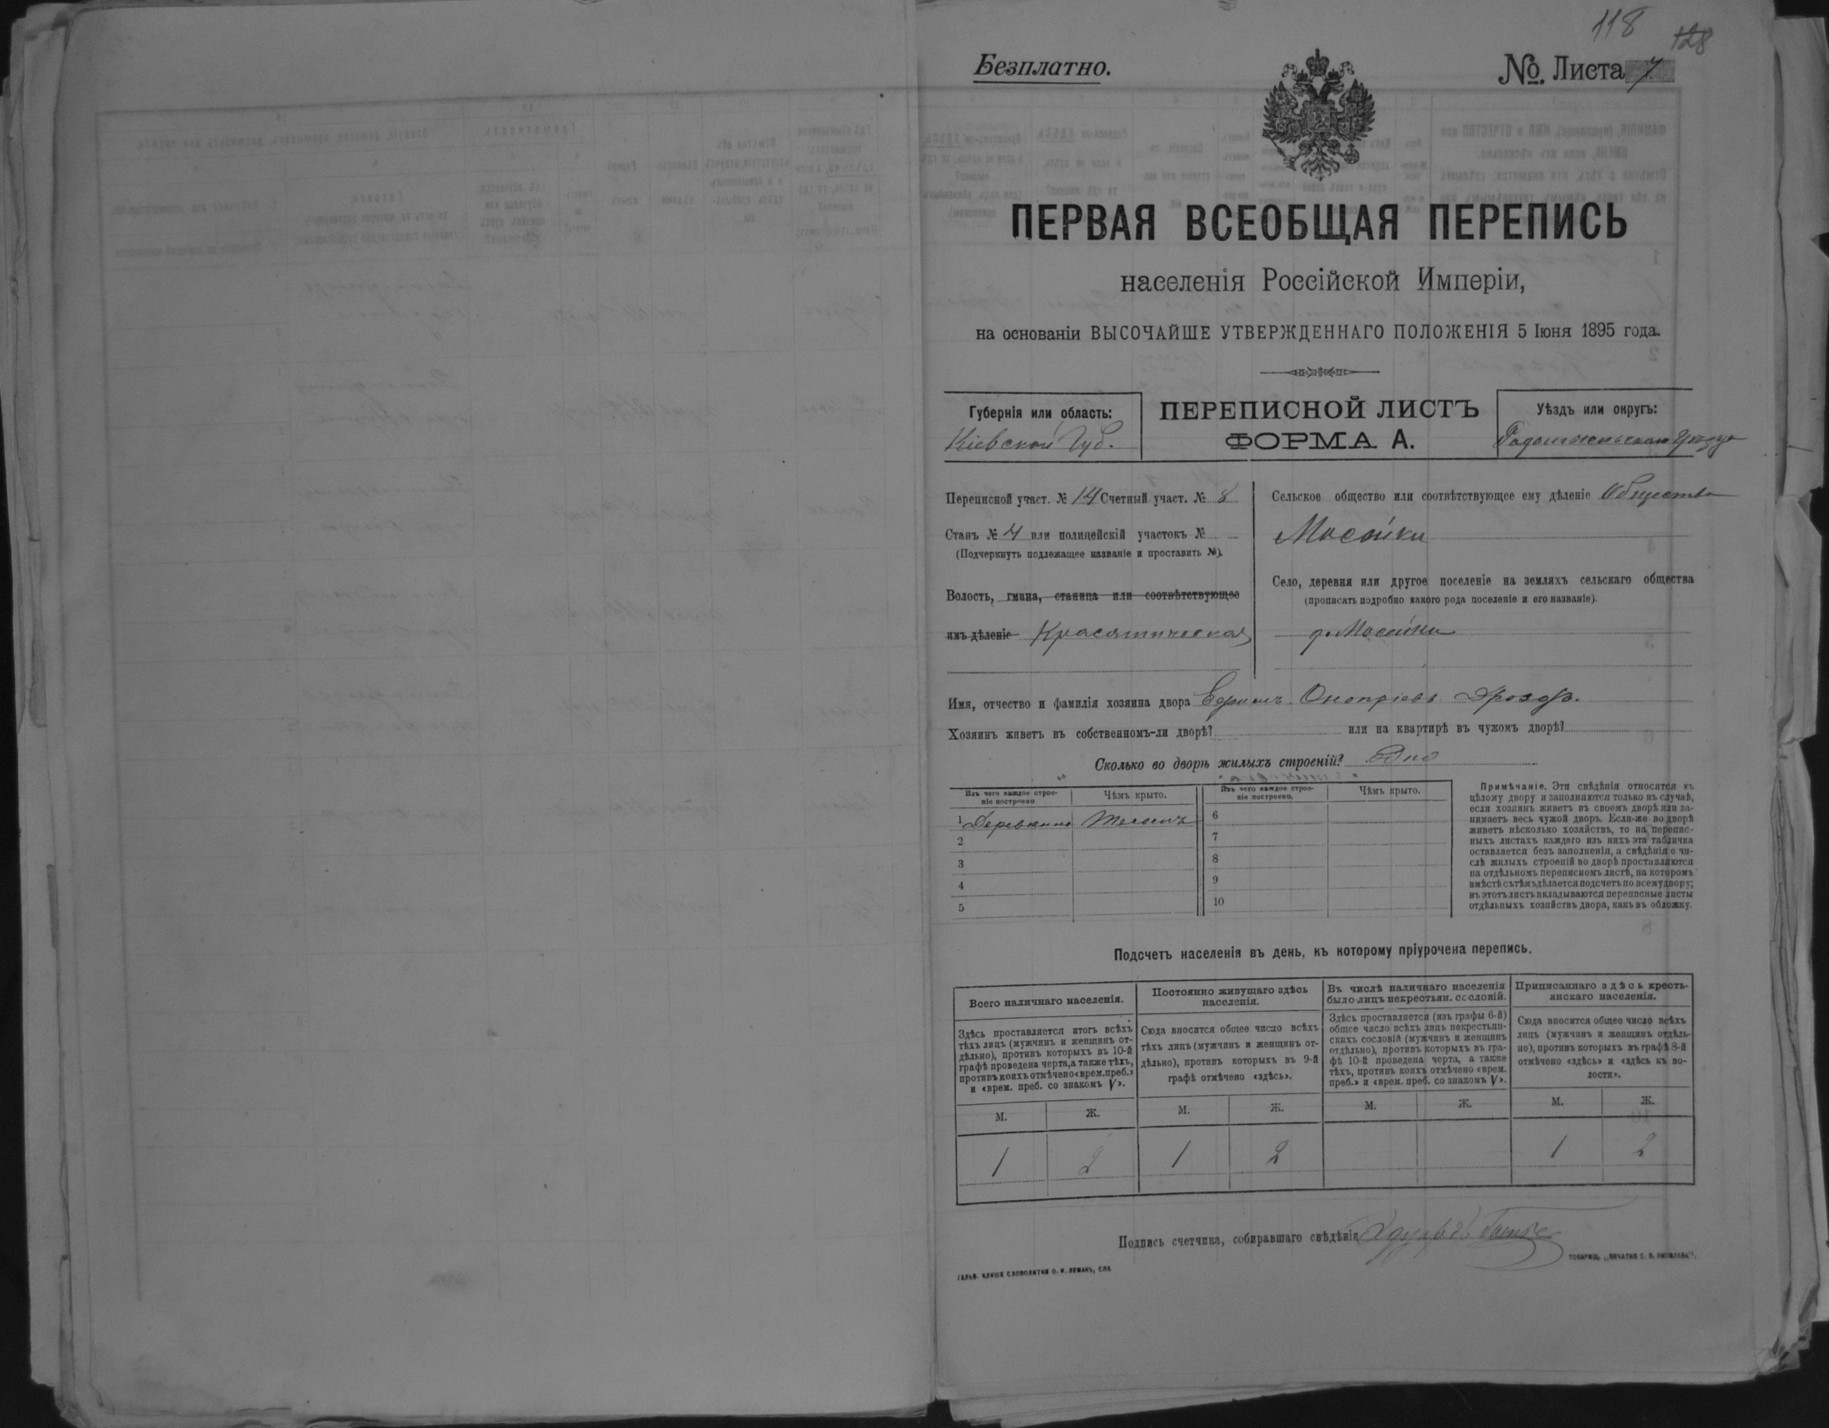 118
128
Безплатно.
№ Листа 7
ПЕРВАЯ ВСЕОБЩАЯ ПЕРЕПИСЬ
населенія Россійской Имперіи,
на основаніи ВЫСОЧАЙШЕ УТВЕРЖДЕННАГО ПОЛОЖЕНІЯ 5 Іюня 1895 года.
Губернія или область:
Кіевской Губ.
ПЕРЕПИСНОЙ ЛИСТЪ
ФОРМА А.
Уѣздъ или округъ:
Переписной участ. № 14 Счетный участ. № 8
Станъ № 4 или полицейскій участокъ №
(Подчеркнуть подлежащее названіе и проставить №).
Волость, гмина, станица или соотвѣтствующее
имъ дѣленіе Красятическая
Сельское общество или соотвѣтствующее ему дѣленіе Общество
Мосейки
Село, деревня или другое поселеніе на земляхъ сельскаго общества
(прописать подробно какого рода поселеніе и его названіе).
д. Мосейки
Имя, отчество и фамилія хозяина двора Ефимъ Оноприевъ Дроздъ.
Хозяинъ живетъ въ собственномъ-ли дворѣ? или на квартирѣ въ чужомъ дворѣ?
Сколько во дворѣ жилыхъ строеній? Одно
Изъ чего каждое строе-
ніе построено
Чѣмъ крыто.
1 Деревянно
2
3
4
5
Изъ чего каждое строе-
ніе построено.
Чѣмъ крыто.
6
7
8
9
10
Примѣчаніе. Эти свѣдѣнія относятся къ
цѣлому двору и заполняются только въ случаѣ,
если хозяинъ живетъ въ своемъ дворѣ или за-
нимаетъ весь чужой дворъ. Если-же во дворѣ
живетъ нѣсколько хозяйствъ, то на перепис-
ныхъ листахъ каждаго изъ нихъ эта табличка
оставляется безъ заполненія, а свѣдѣнія о чи-
слѣ жилыхъ строеній во дворѣ проставляются
на отдѣльномъ переписномъ листѣ, на которомъ
вмѣстѣ съ тѣмъ дѣлается подсчетъ по всему двору;
въ этотъ листъ вкладываются переписные листы
отдѣльныхъ хозяйствъ двора, какъ въ обложку.
Подсчетъ населенія въ день, къ которому пріурочена перепись.
Всего наличнаго населенія.
Здѣсь проставляется итогъ всѣхъ
тѣхъ лицъ (мужчинъ и женщинъ от-
дѣльно), противъ которыхъ въ 10-й
графѣ проведена черта, а также тѣхъ,
противъ коихъ отмѣчено «врем. преб.»
и «врем. преб. со знакомъ V».
М. Ж.
1 2
Постоянно живущаго здѣсь
населенія.
Сюда вносится общее число всѣхъ
тѣхъ лицъ (мужчинъ и женщинъ от-
дѣльно), противъ которыхъ въ 9-й
графѣ отмѣчено «здѣсь».
М. Ж.
1 2
Въ числѣ наличнаго населенія
было лицъ некрестьян. сословій.
Здѣсь проставляется (изъ графы 6-й)
общее число всѣхъ лицъ некрестьян-
скихъ сословій (мужчинъ и женщинъ
отдѣльно), противъ которыхъ въ гра-
фѣ 10-й проведена черта, а также
тѣхъ, противъ коихъ отмѣчено «врем.
преб.» и «врем. преб. со знакомъ V».
М. Ж.
Приписаннаго здѣсь кресть-
янскаго населенія.
Сюда вносится общее число всѣхъ
лицъ (мужчинъ и женщинъ отдѣль-
но), противъ которыхъ въ графѣ 8-й
отмѣчено «здѣсь» и «здѣсь въ во-
лости».
М. Ж.
1 2
Подпись счетчика, собиравшаго свѣдѣнія
ГАЛЬВ. КЛИШЕ СЛОВОЛИТНИ О. И. ЛЕМАНЪ, СПБ.
ТОВАРИЩ. „ПЕЧАТНЯ С. П. ЯКОВЛЕВА“.